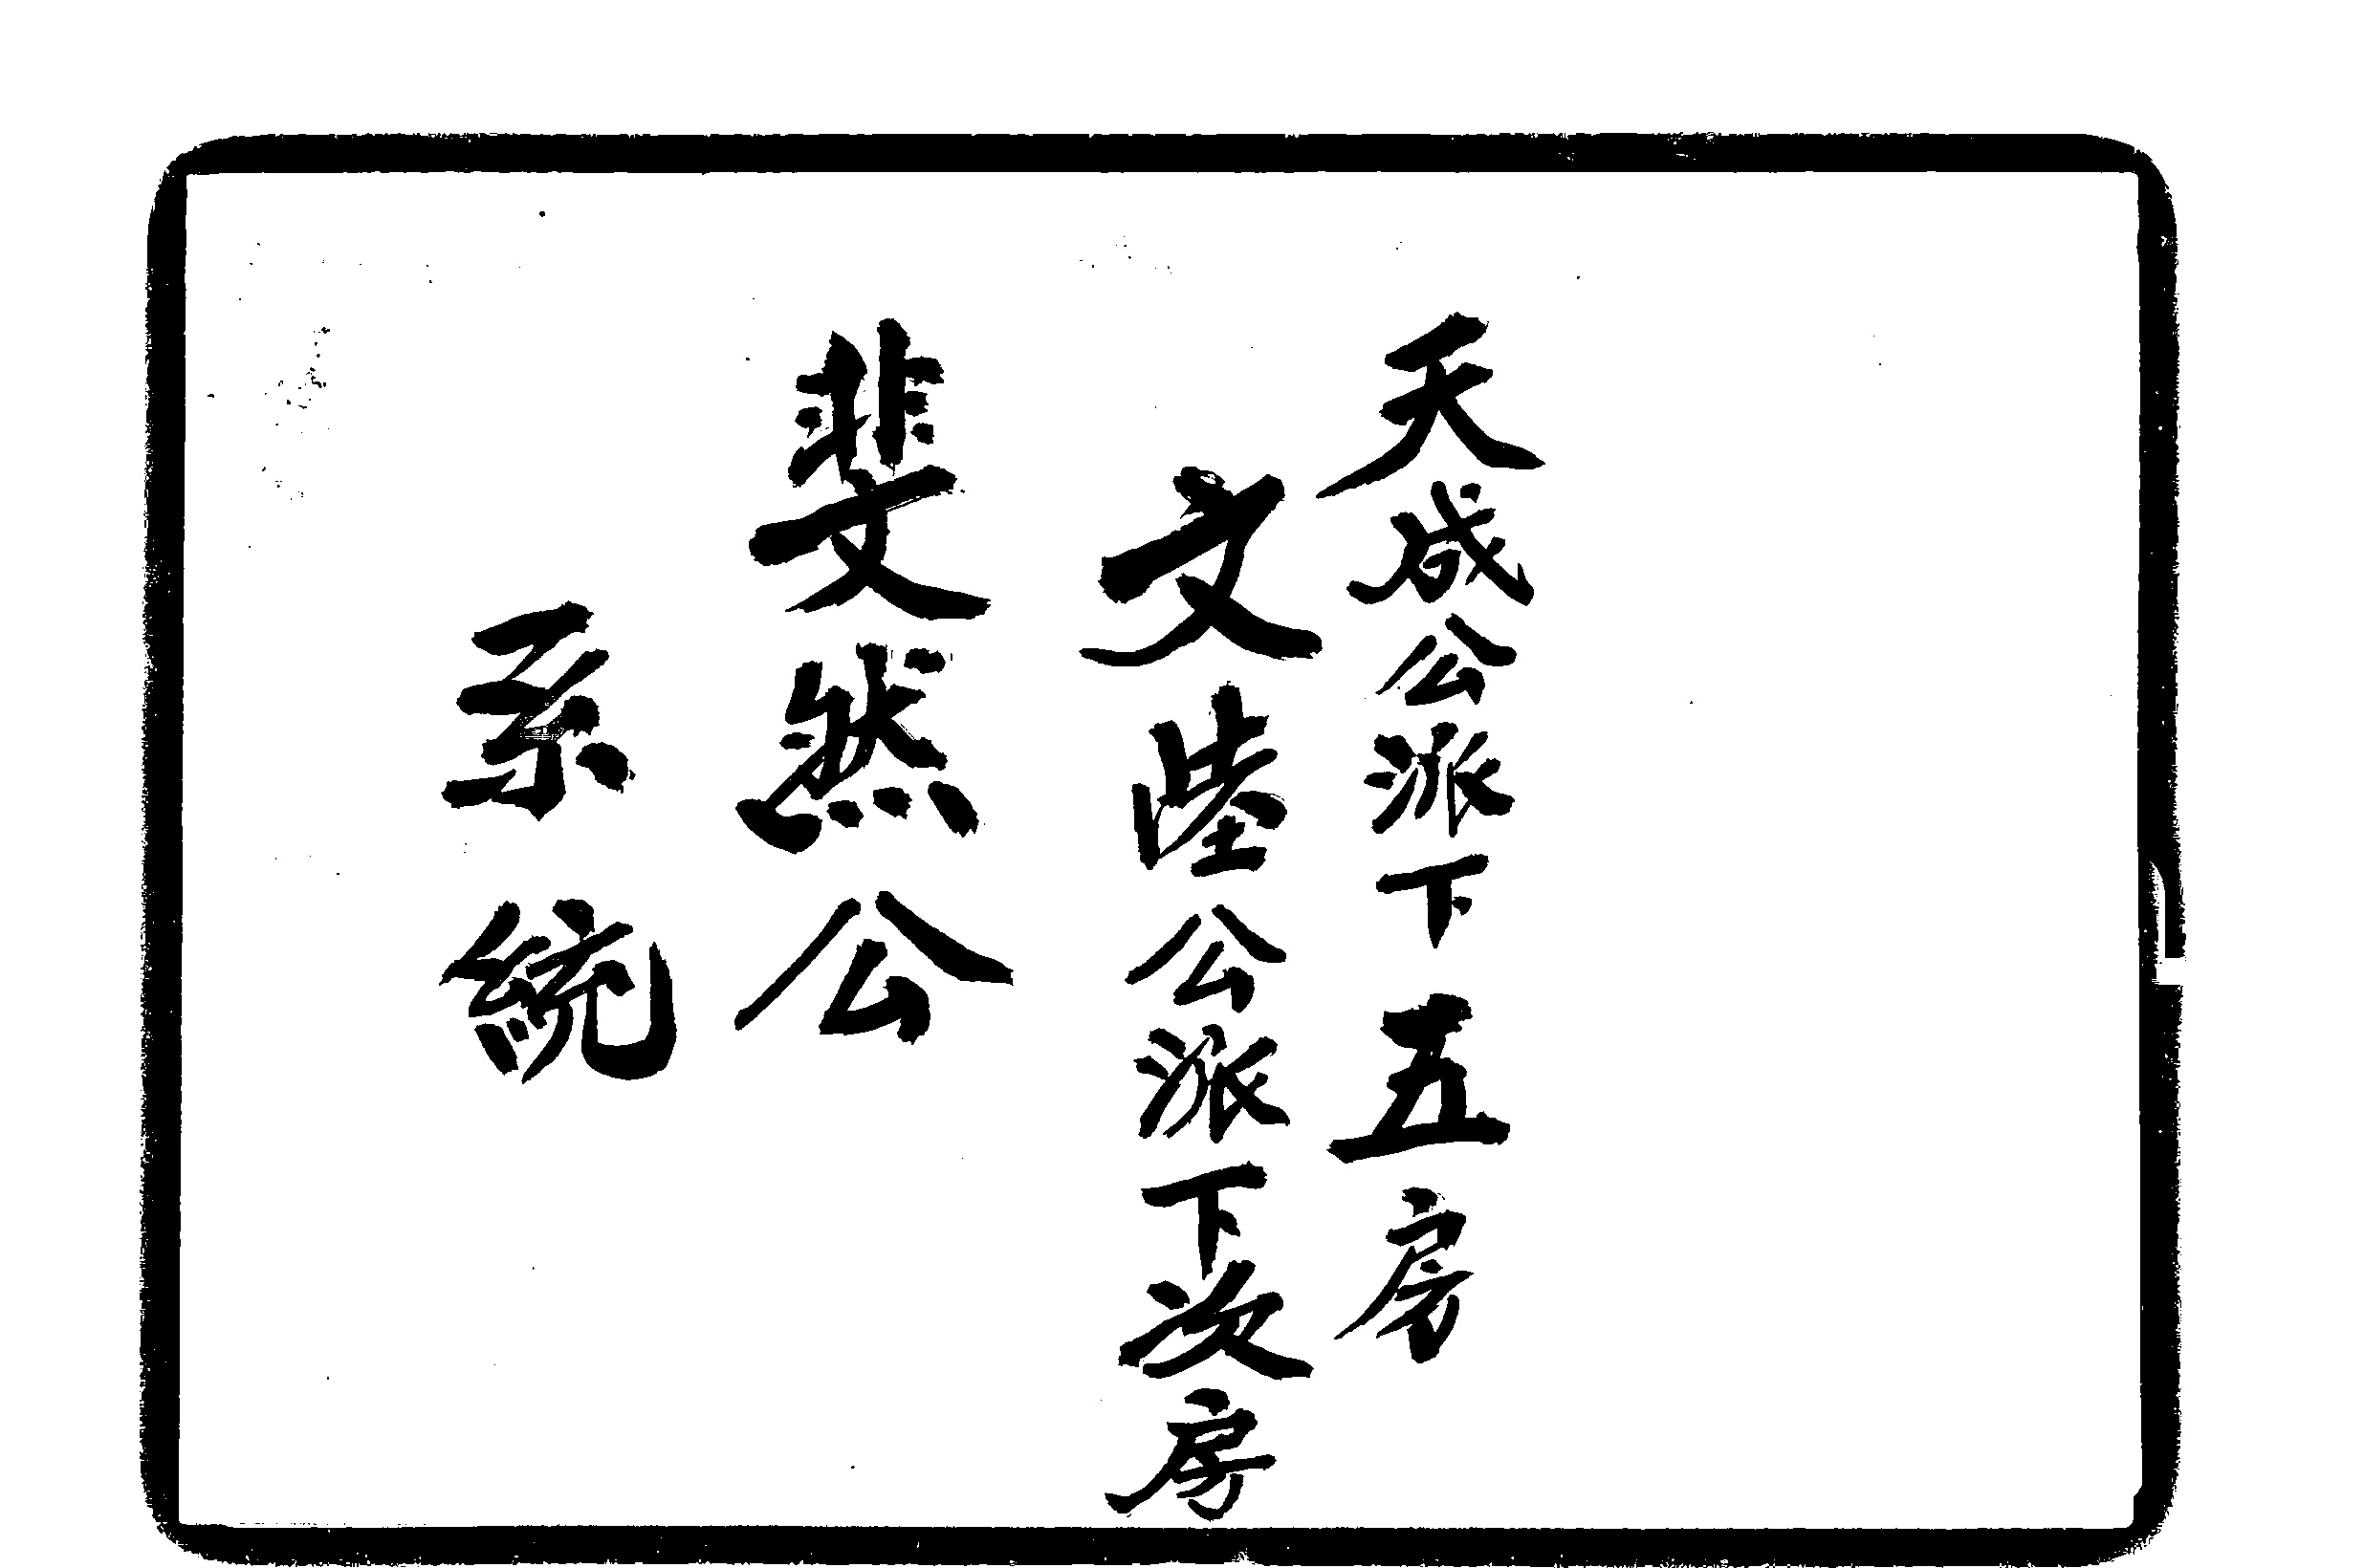 天成公派下五房
文陸公派下次房
斐然公
系統